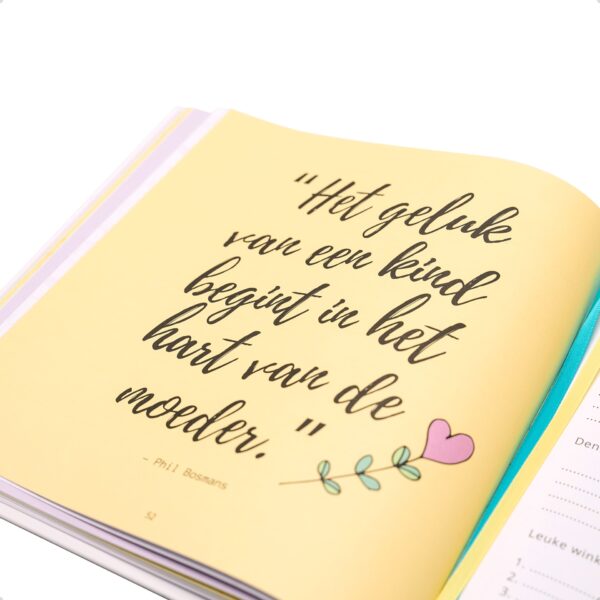 "Het geluk
van een kind
begint in het
hart van de
moeder."
– Phil Bosmans
52
Den
Leuke wink
1.
2.
3.